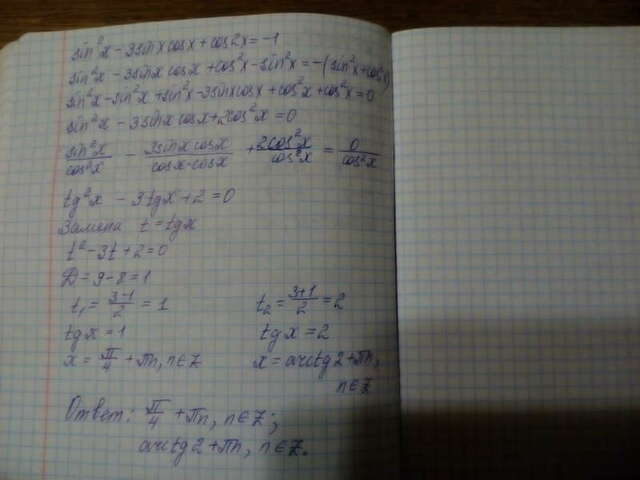 sin²x - 3sinx cosx + cos2x = -1
sin²x - 3sinx cosx + cos²x - sin²x = -(sin²x + cos²x)
sin²x - sin²x + sin²x - 3sinx cosx + cos²x + cos²x = 0
sin²x - 3sinx cosx + 2cos²x = 0
sin²x/cos²x - 3sinx cosx/cosx·cosx + 2cos²x/cos²x = 0/cos²x
tg²x - 3tgx + 2 = 0
Замена t = tgx
t² - 3t + 2 = 0
D = 9 - 8 = 1
t₁ = 3-1/2 = 1 t₂ = 3+1/2 = 2
tgx = 1 tgx = 2
x = π/4 + πn, n∈Z x = arctg2 + πn,
n∈Z
Ответ: π/4 + πn, n∈Z;
arctg2 + πn, n∈Z.